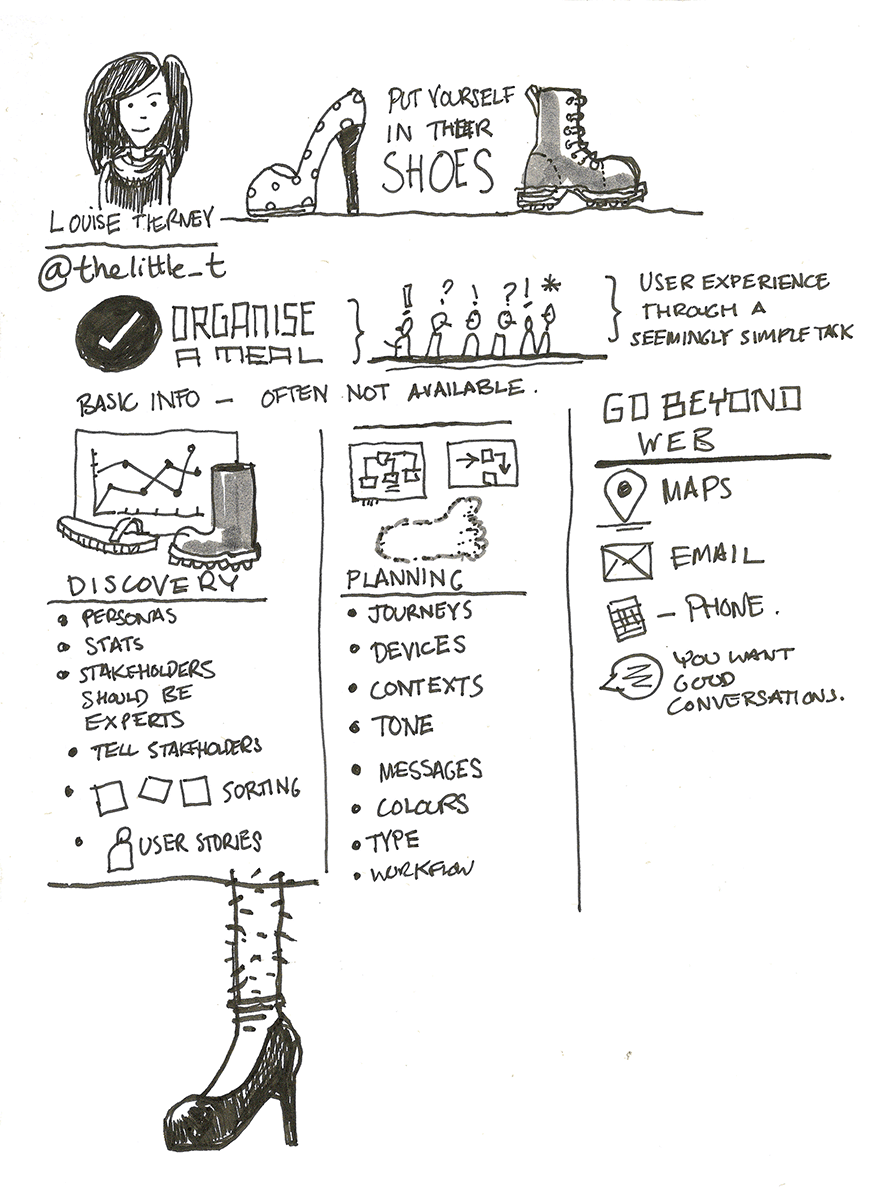 PUT YOURSELF
IN THEIR
SHOES
LOUISE TIERNEY
@thelittle_t
ORGANISE
A MEAL
! ? ! ? ! *
USER EXPERIENCE
THROUGH A
SEEMINGLY SIMPLE TASK
BASIC INFO — OFTEN NOT AVAILABLE.
DISCOVERY
• PERSONAS
• STATS
• STAKEHOLDERS
SHOULD BE
EXPERTS
• TELL STAKEHOLDERS
• SORTING
• USER STORIES
PLANNING
• JOURNEYS
• DEVICES
• CONTEXTS
• TONE
• MESSAGES
• COLOURS
• TYPE
• WORKFLOW
GO BEYOND
WEB
MAPS
EMAIL
– PHONE.
YOU WANT
GOOD
CONVERSATIONS.